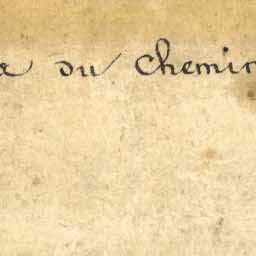 du chemin